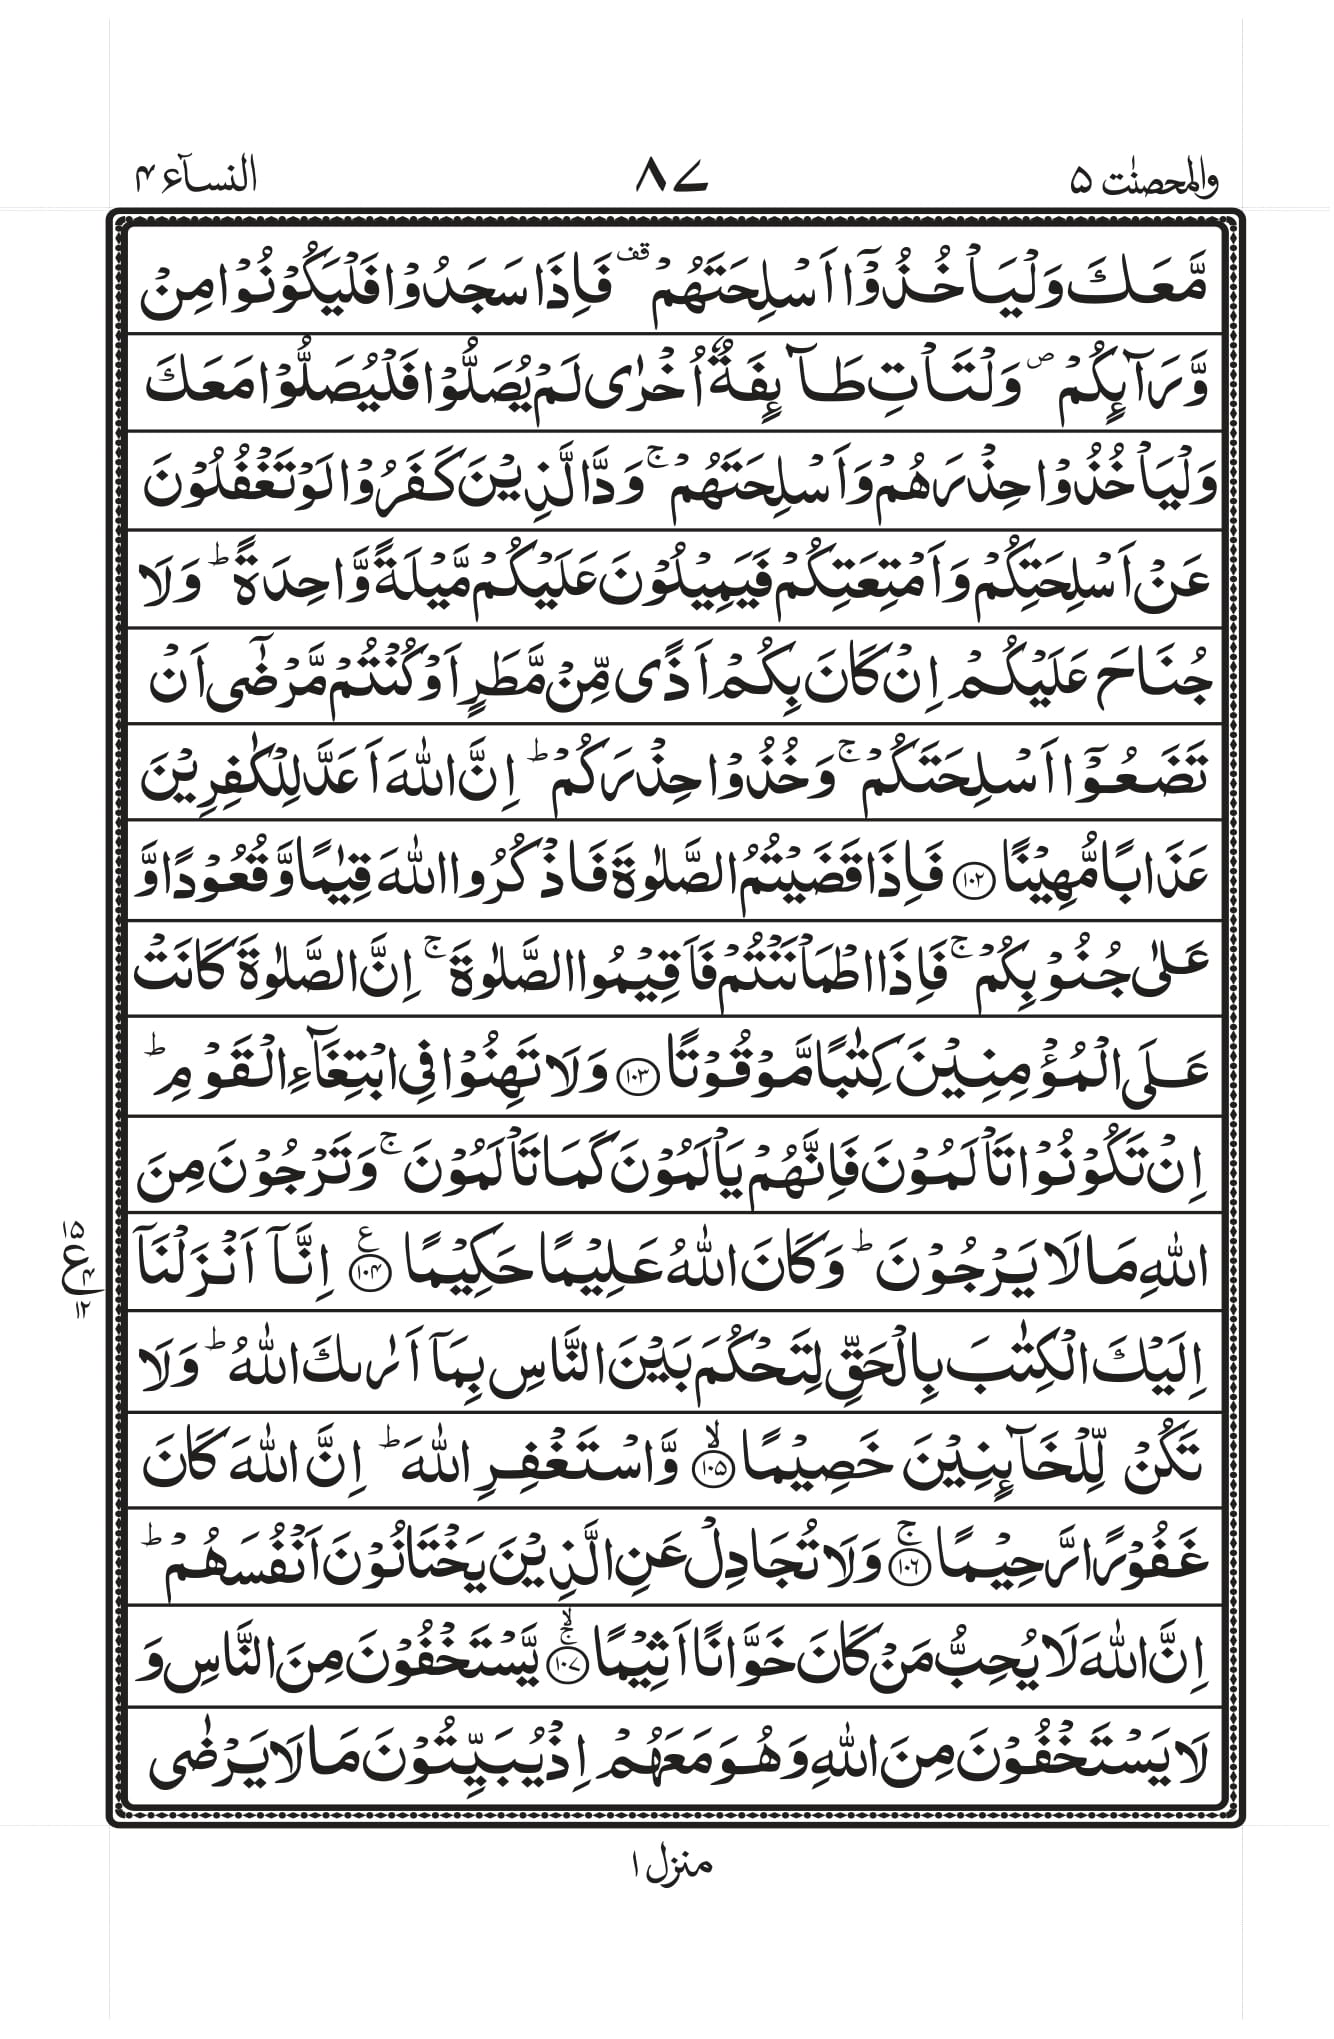 والمحصنٰت ۵
۸۷
النسآء ۴
مَّعَكَ وَلۡيَاۡخُذُوۡۤا اَسۡلِحَتَهُمۡ ۫ فَاِذَا سَجَدُوۡا فَلۡيَكُوۡنُوۡا مِنۡ
وَّرَآٮِٕكُمۡ ۖ وَلۡتَاۡتِ طَآٮِٕفَةٌ اُخۡرٰى لَمۡ يُصَلُّوۡا فَلۡيُصَلُّوۡا مَعَكَ
وَلۡيَاۡخُذُوۡا حِذۡرَهُمۡ وَاَسۡلِحَتَهُمۡ ۚ وَدَّ الَّذِيۡنَ كَفَرُوۡا لَوۡ تَغۡفُلُوۡنَ
عَنۡ اَسۡلِحَتِكُمۡ وَاَمۡتِعَتِكُمۡ فَيَمِيۡلُوۡنَ عَلَيۡكُمۡ مَّيۡلَةً وَّاحِدَةً ؕ وَلَا
جُنَاحَ عَلَيۡكُمۡ اِنۡ كَانَ بِكُمۡ اَذًى مِّنۡ مَّطَرٍ اَوۡ كُنۡتُمۡ مَّرۡضٰۤى اَنۡ
تَضَعُوۡۤا اَسۡلِحَتَكُمۡ ۚ وَخُذُوۡا حِذۡرَكُمۡ ؕ اِنَّ اللّٰهَ اَعَدَّ لِلۡكٰفِرِيۡنَ
عَذَابًا مُّهِيۡنًا ۝۱۰۲ فَاِذَا قَضَيۡتُمُ الصَّلٰوةَ فَاذۡكُرُوا اللّٰهَ قِيٰمًا وَّقُعُوۡدًا وَّ
عَلٰى جُنُوۡبِكُمۡ ۚ فَاِذَا اطۡمَاۡنَنۡتُمۡ فَاَقِيۡمُوا الصَّلٰوةَ ۚ اِنَّ الصَّلٰوةَ كَانَتۡ
عَلَى الۡمُؤۡمِنِيۡنَ كِتٰبًا مَّوۡقُوۡتًا ۝۱۰۳ وَلَا تَهِنُوۡا فِى ابۡتِغَآءِ الۡقَوۡمِ ؕ
اِنۡ تَكُوۡنُوۡا تَاۡلَمُوۡنَ فَاِنَّهُمۡ يَاۡلَمُوۡنَ كَمَا تَاۡلَمُوۡنَ ۚ وَتَرۡجُوۡنَ مِنَ
اللّٰهِ مَا لَا يَرۡجُوۡنَ ؕ وَكَانَ اللّٰهُ عَلِيۡمًا حَكِيۡمًا ۝۱۰۴ ع اِنَّاۤ اَنۡزَلۡنَاۤ
۱۵
ع ۴
۱۲
اِلَيۡكَ الۡكِتٰبَ بِالۡحَقِّ لِتَحۡكُمَ بَيۡنَ النَّاسِ بِمَاۤ اَرٰٮكَ اللّٰهُ ؕ وَلَا
تَكُنۡ لِّلۡخَآٮِٕنِيۡنَ خَصِيۡمًا ۙ‏۝۱۰۵ وَّاسۡتَغۡفِرِ اللّٰهَ ؕ اِنَّ اللّٰهَ كَانَ
غَفُوۡرًا رَّحِيۡمًا ۚ‏۝۱۰۶ وَلَا تُجَادِلۡ عَنِ الَّذِيۡنَ يَخۡتَانُوۡنَ اَنۡفُسَهُمۡ ؕ
اِنَّ اللّٰهَ لَا يُحِبُّ مَنۡ كَانَ خَوَّانًا اَثِيۡمًا ۙۚ‏۝۱۰۷ يَّسۡتَخۡفُوۡنَ مِنَ النَّاسِ وَ
لَا يَسۡتَخۡفُوۡنَ مِنَ اللّٰهِ وَهُوَ مَعَهُمۡ اِذۡ يُبَيِّتُوۡنَ مَا لَا يَرۡضٰى
منزل ۱